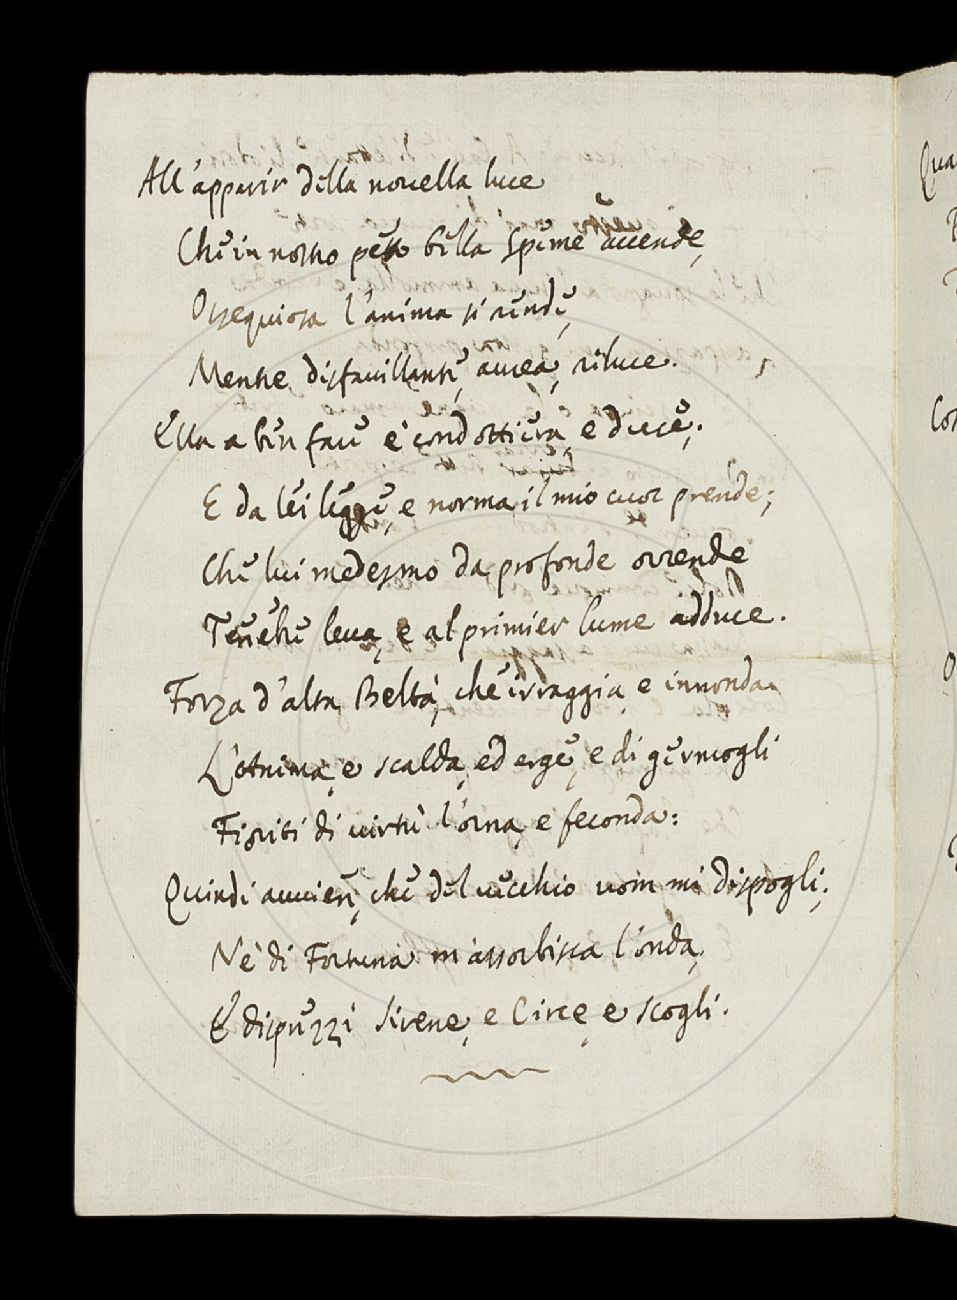 All'apparir della novella luce
Che in nostro petto bella speme accende,
Ossequiosa l'anima si rende,
Mentre disfavillante, aurea, riluce.
Ella a ben fare è condottiera, e duce;
E da lei legge, e norma il mio cuor prende;
Che lui medesmo da profonde orrende
Tenebre leva, e al primier lume adduce.
Forza d'alta Beltà, che irraggia, e innonda
L'Anima, e scalda, ed erge, e di germogli
Fioriti di virtù l'orna, e feconda:
Quindi avvien, che del vecchio uom mi dispogli;
Nè di Fortuna m'assorbisca l'onda,
E disprezzi Sirene, e Circe, e scogli.
Qua
Co